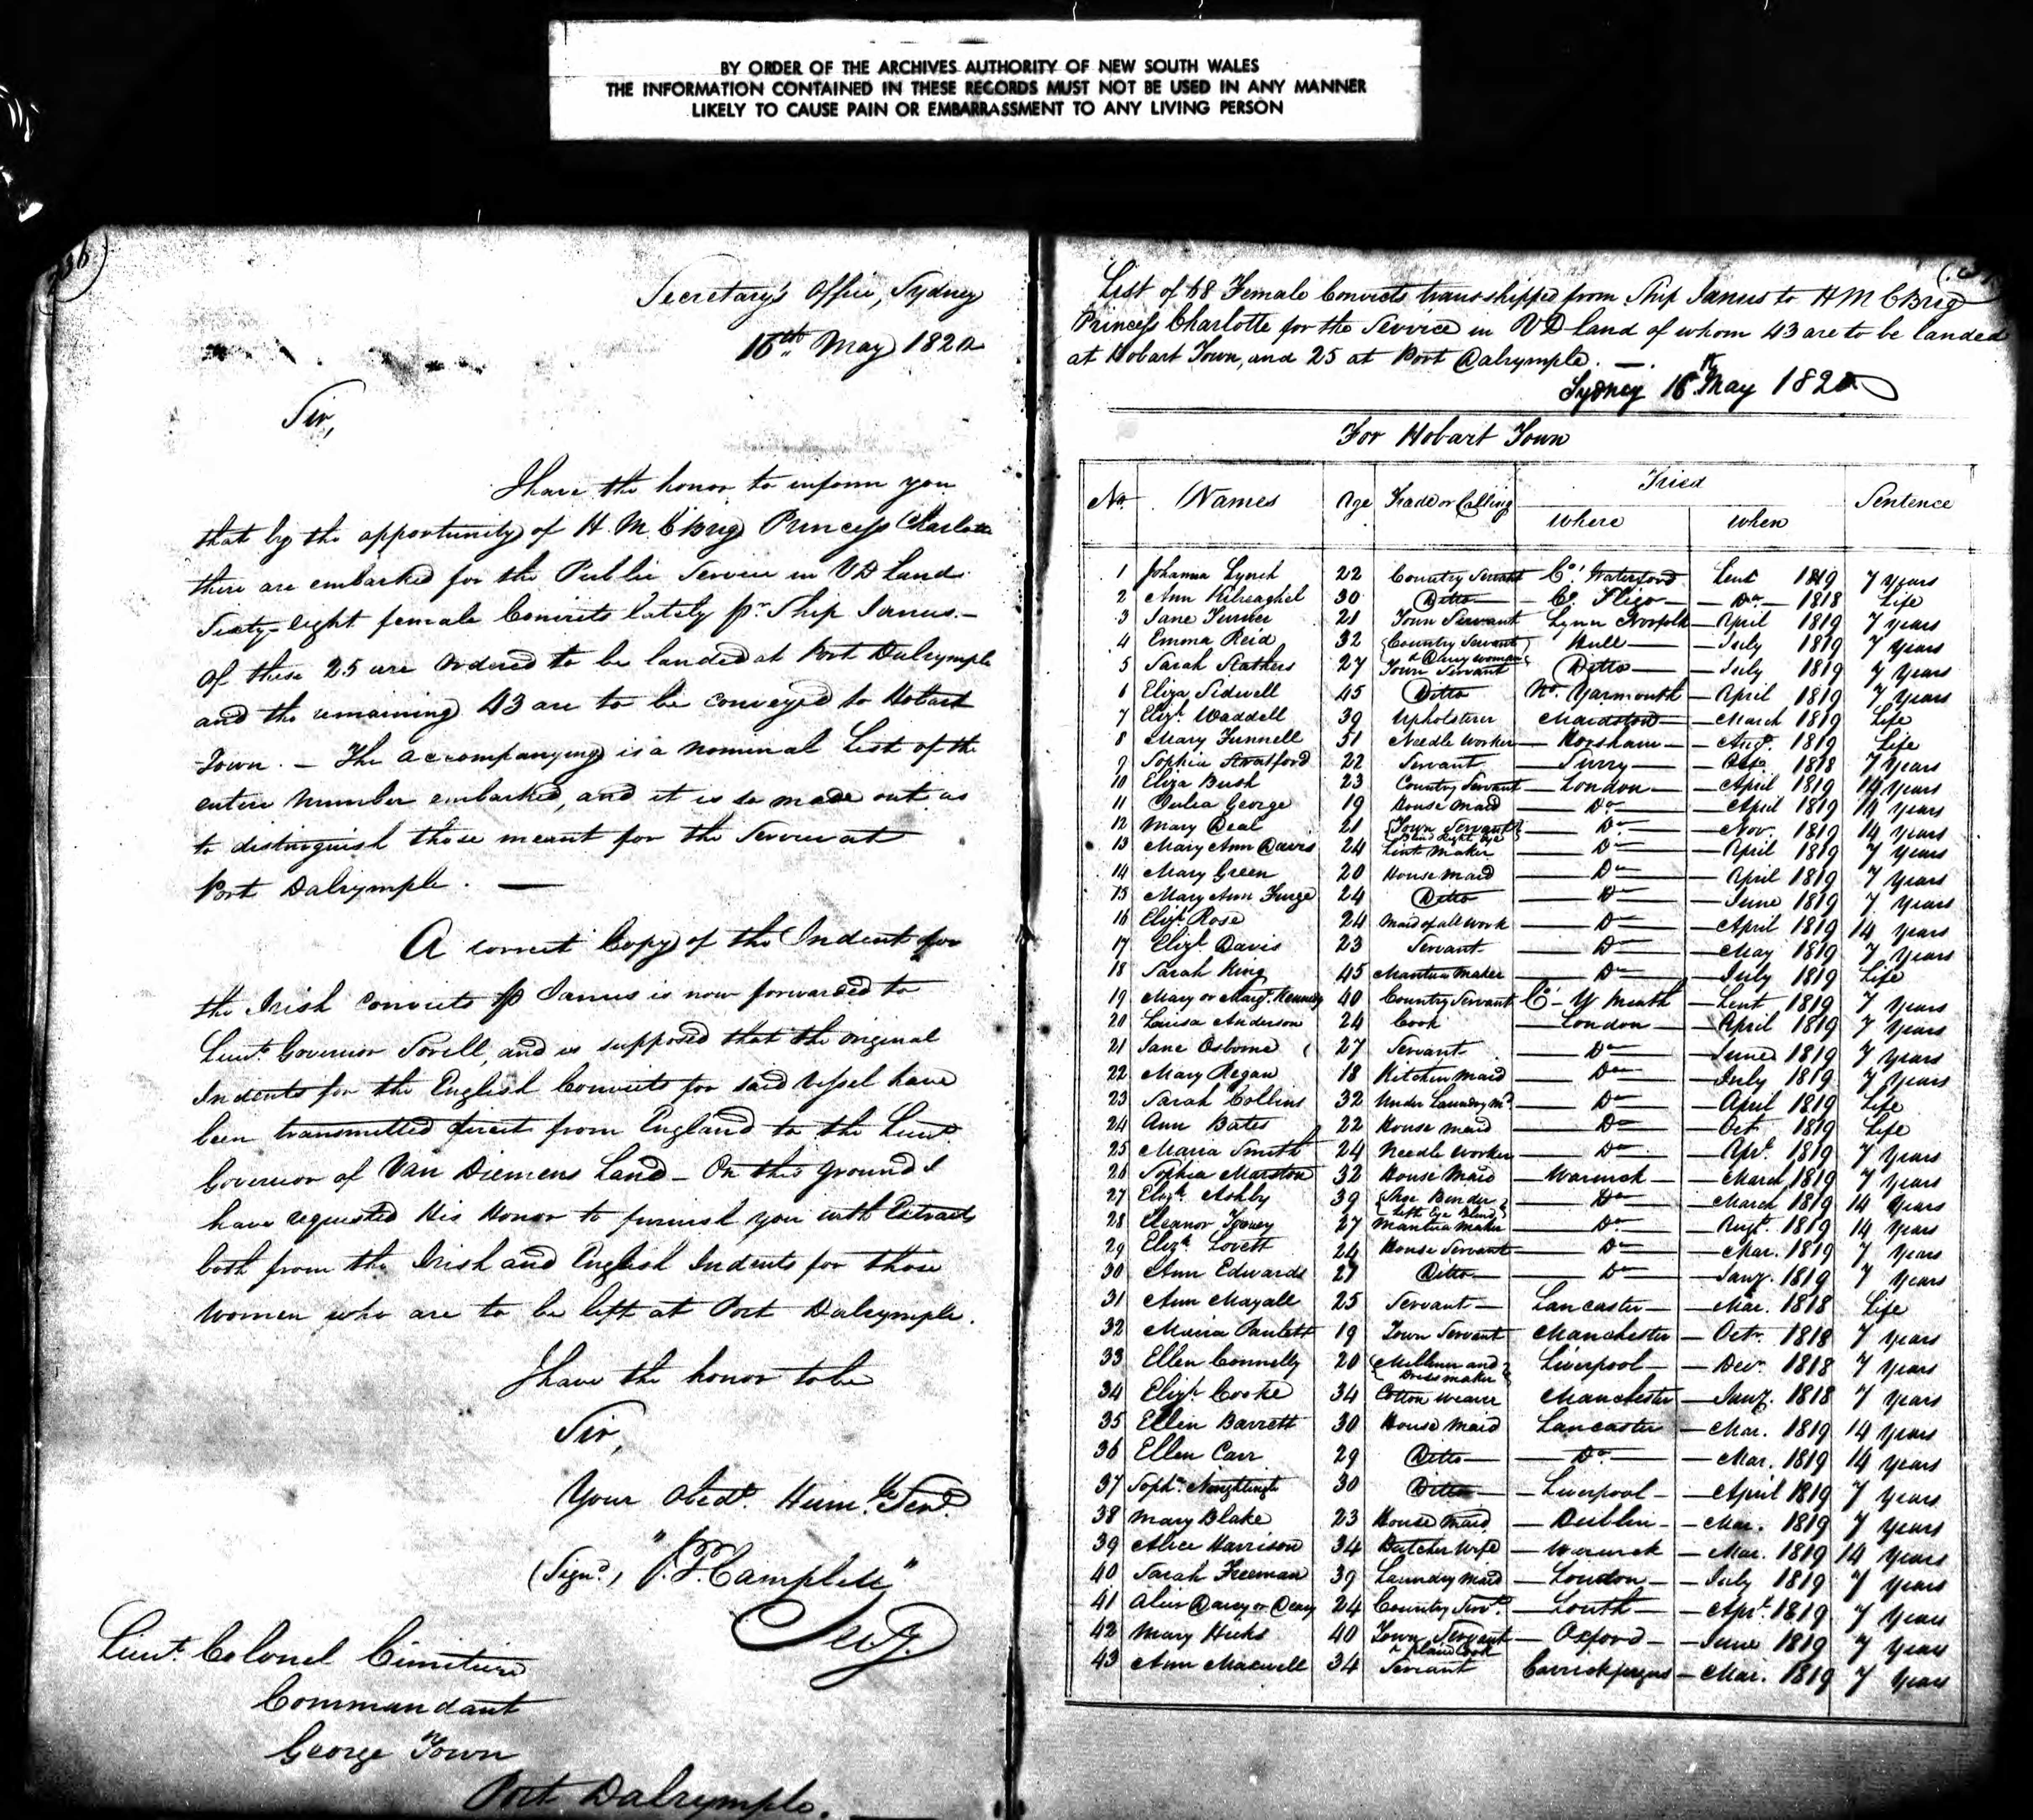 BY ORDER OF THE ARCHIVES AUTHORITY OF NEW SOUTH WALES
THE INFORMATION CONTAINED IN THESE RECORDS MUST NOT BE USED IN ANY MANNER
LIKELY TO CAUSE PAIN OR EMBARRASSMENT TO ANY LIVING PERSON
Secretary's Office, Sydney
16th May 1820
Sir,
I have the honor to inform you
that by the opportunity of H. M. C Brig Princess Charlotte
there are embarked for the Public Service in VD Land
Sixty-eight female Convicts lately pr. Ship Janus.-
Of these 25 are ordered to be landed at Port Dalrymple
and the remaining 43 are to be conveyed to Hobart
Town. - The accompanying is a nominal List of the
entire number embarked, and it is so made out as
to distinguish those meant for the Service at
Port Dalrymple. —
A correct Copy of the Indent for
the Irish Convicts pr Janus is now forwarded to
Lieut. Governor Sorell, and is supposed that the original
Indents for the English Convicts for said Vessel have
been transmitted direct from England to the Lieut.
Governor of Van Diemens Land - On this ground I
have requested His Honor to furnish you with Extracts
both from the Irish and English Indents for those
women who are to be left at Port Dalrymple.
I have the honor to be
Sir,
Your Obedt. Humble Servt.
(Signd.) "J. T. Campbell"
Secy.
Lieut. Colonel Cimitiere
Commandant
George Town
Port Dalrymple. —
List of 68 Female Convicts transshipped from Ship Janus to H M C Brig
Princess Charlotte for the Service in VD land of whom 43 are to be landed
at Hobart Town, and 25 at Port Dalrymple. —.
Sydney 16th May 1820
For Hobart Town
No. Names Age Trade or Calling Tried Sentence
where when
1 Johanna Lynch 22 Country Servant Co. Waterford Lent 1819 7 years
2 Ann Kilreaghel 30 Ditto Co. Sligo Do. 1818 Life
3 Jane Turner 21 Town Servant Lynn Norfolk April 1819 7 years
4 Emma Reid 32 Country Servant & Dairy woman Hull July 1819 7 years
5 Sarah Stathers 27 Town Servant Ditto July 1819 7 years
6 Eliza Sidwell 45 Ditto No. Yarmouth April 1819 7 years
7 Elizh. Waddell 39 Upholsterer Maidstone March 1819 Life
8 Mary Funnell 51 Needle Worker Horsham Augt. 1819 Life
9 Sophia Stratford 22 Servant Surry 1818 7 years
10 Eliza Bush 23 Country Servant London April 1819 14 years
11 Julia George 19 House Maid Do April 1819 14 years
12 Mary Deal 21 Town Servant Blind Right Eye Do Nov. 1819 14 years
13 Mary Ann Davis 24 Lint Maker Do April 1819 7 years
14 Mary Green 20 House Maid Do April 1819 7 years
15 Mary Ann Furze 24 Ditto Do June 1819 7 years
16 Elizh. Rose 24 Maid of all Work Do April 1819 14 years
17 Elizh. Davis 23 Servant Do May 1819 7 years
18 Sarah King 45 Mantua Maker Do July 1819 Life
19 Mary or Margt. Kennedy 40 Country Servant Co. W Meath Lent 1819 7 years
20 Louisa Anderson 24 Cook London April 1819 7 years
21 Jane Osborne 27 Servant Do June 1819 7 years
22 Mary Regan 18 Kitchen Maid Do July 1819 7 years
23 Sarah Collins 32 Under Laundry Md. Do April 1819 Life
24 Ann Bates 22 House Maid Do Oct. 1819 Life
25 Maria Smith 24 Needle Worker Do Apl. 1819 7 years
26 Sophia Marston 32 House Maid Warwick March 1819 7 years
27 Elizh. Ashby 39 Binder Left Eye Blind Do March 1819 14 years
28 Eleanor Tooney 27 Mantua Maker Do Augt. 1819 14 years
29 Elizh. Lovett 24 House Servant Do Mar. 1819 7 years
30 Ann Edwards 27 Ditto Do Jany. 1819 7 years
31 Ann Mayall 25 Servant Lancaster Mar. 1818 Life
32 Maria Paulett 19 Town Servant Manchester Octr. 1818 7 years
33 Ellen Connelly 20 Milliner and Dressmaker Liverpool Decr. 1818 7 years
34 Elizh. Cooke 34 Cotton Weaver Manchester Jany. 1818 7 years
35 Ellen Barrett 30 House Maid Lancaster Mar. 1819 14 years
36 Ellen Carr 29 Ditto Do Mar. 1819 14 years
37 Sopha. Nightingale 30 Ditto Liverpool April 1819 7 years
38 Mary Blake 23 House Maid Dublin Mar. 1819 7 years
39 Alice Harrison 34 Butcher Wife Warwick Mar. 1819 14 years
40 Sarah Freeman 39 Laundry Maid London July 1819 7 years
41 Alice Darcy or Deary 24 Country Servt. Louth Apl. 1819 7 years
42 Mary Hicks 40 Town Servant & Plain Cook Oxford June 1819 7 years
43 Ann Maxwell 34 Servant Carrickfergus Mar. 1819 7 years